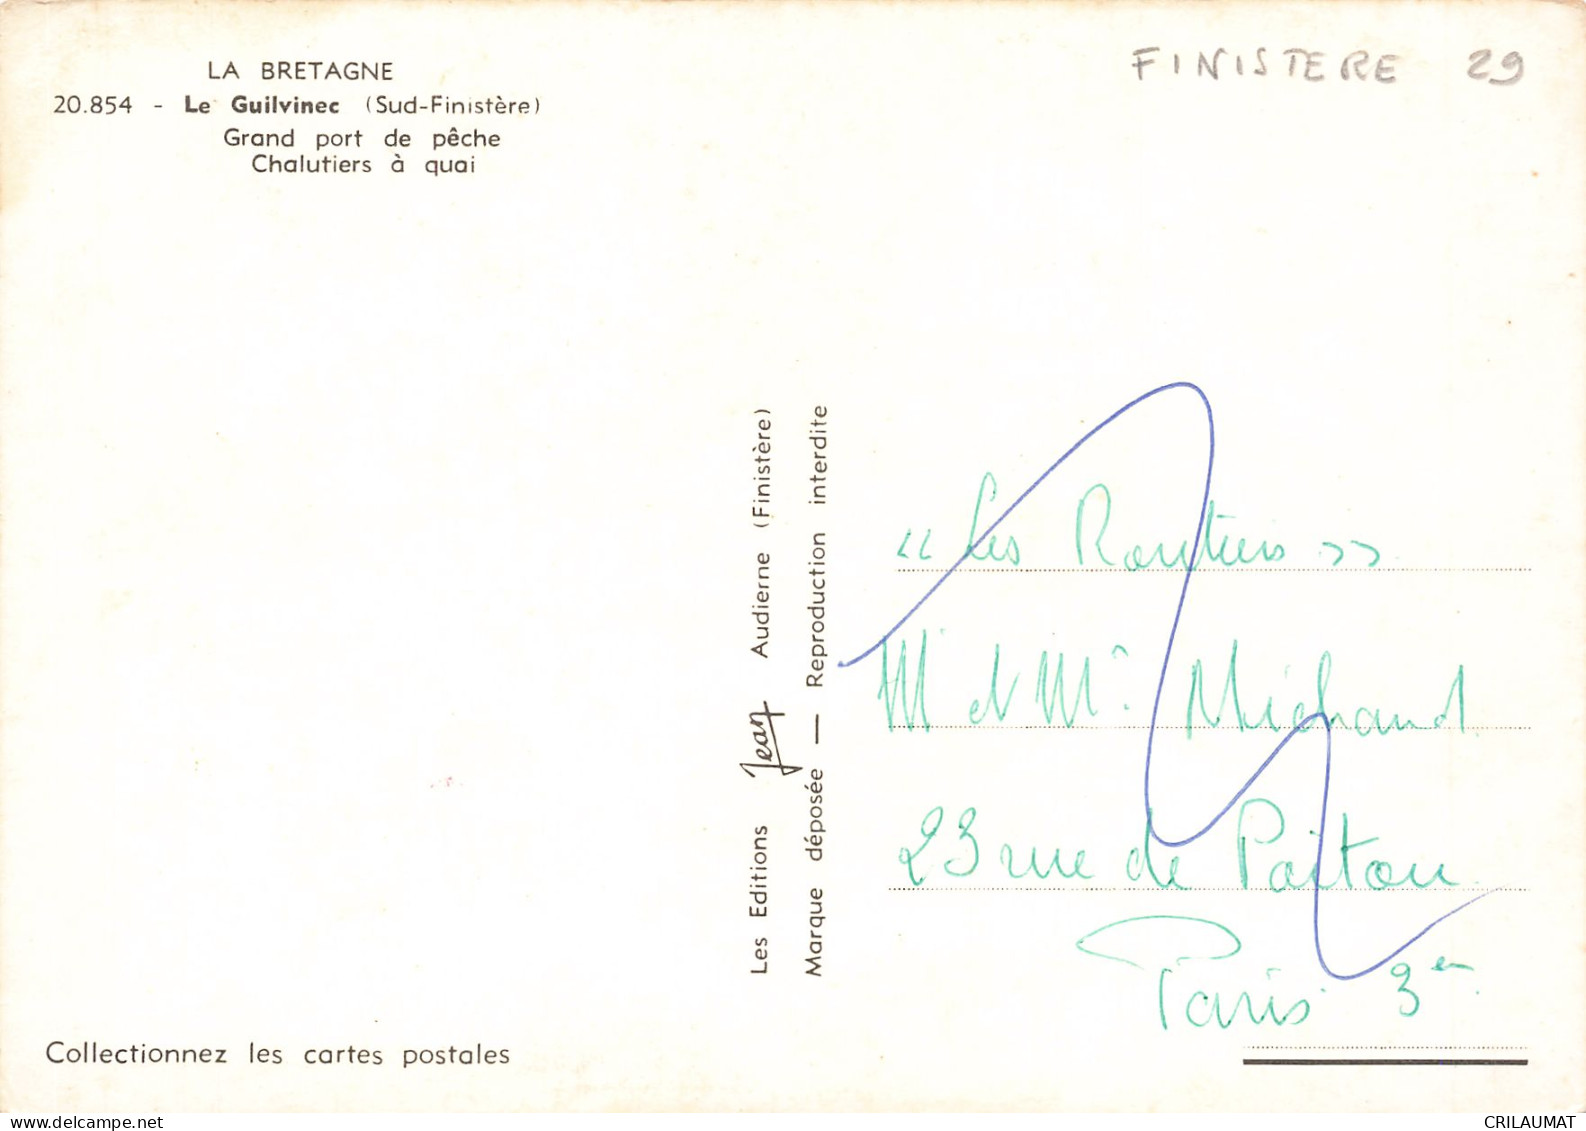 LA BRETAGNE
20.854 - Le Guilvinec (Sud-Finistère)
Grand port de pêche
Chalutiers à quai
FINISTERE 29
Les Editions Jean Audierne (Finistère)
Marque déposée — Reproduction interdite
« Les Routiers »
Mr et Me Michaud
23 rue de Poitou
Paris 3e
Collectionnez les cartes postales
delcampe.net
CRILAUMAT